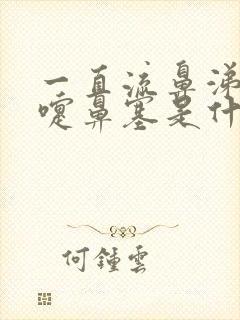 一直流鼻涕
嚏鼻塞是什
何鍾雲